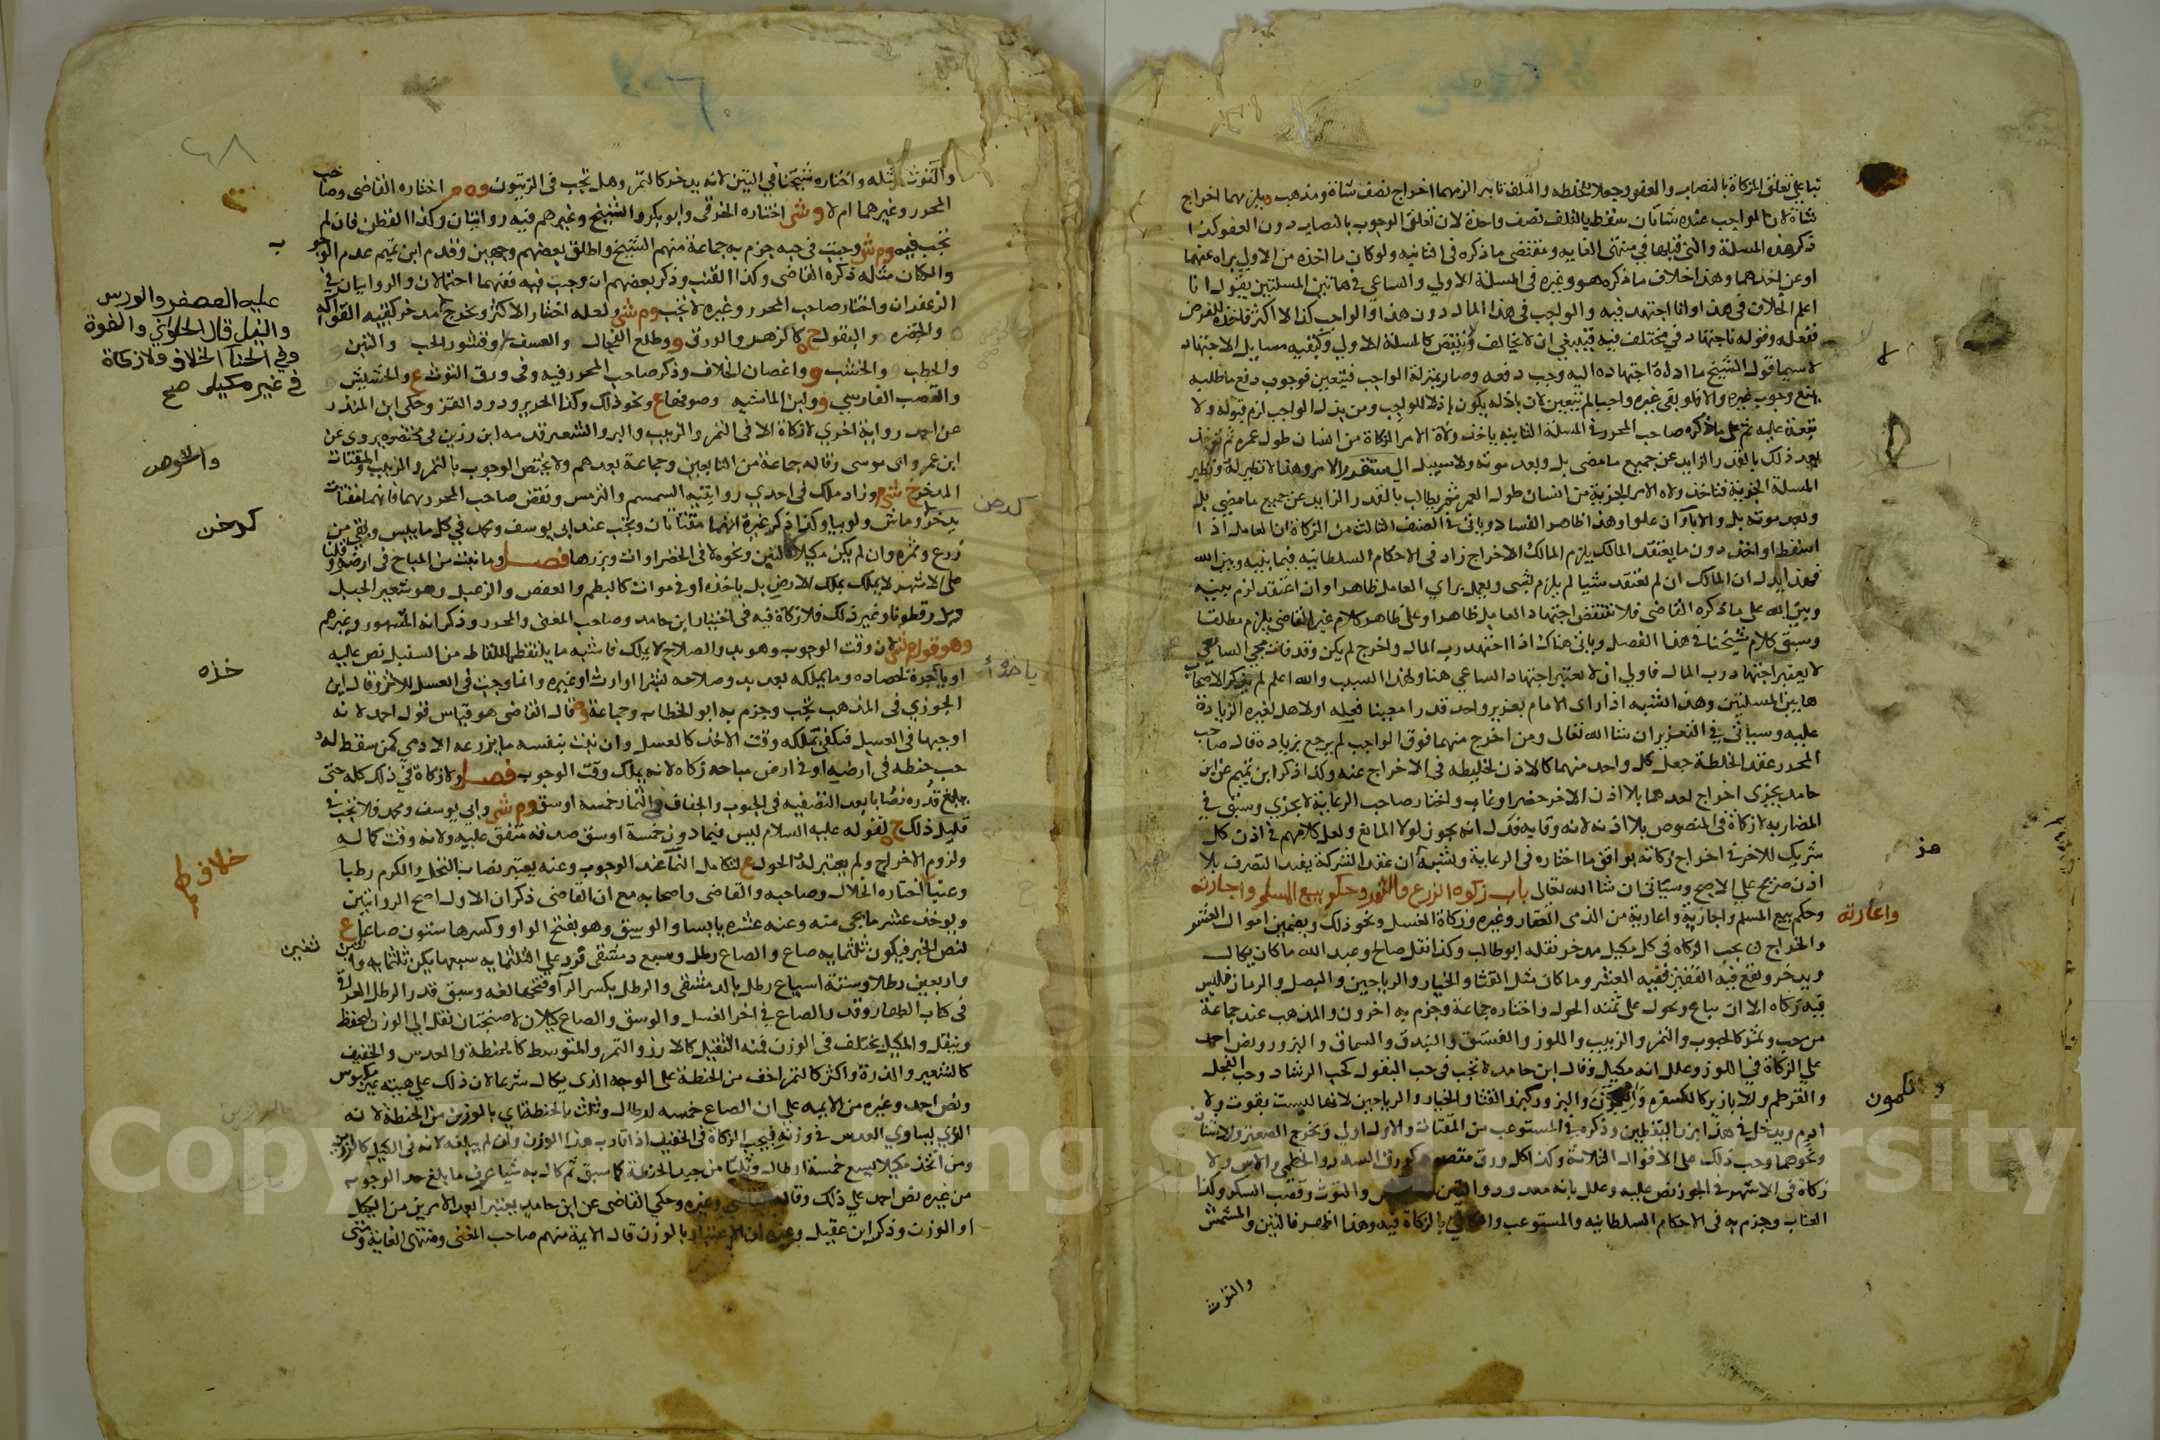 بنا على تعلق الزكاة بالنصاب والعفو وجعلا للخلطه والتلف تاثيرا لزمهما اخراج نصف شاة ومذهب م يلزمهما اخراج
شاة لان الواجب عنده شاتان سقط بالتلف نصف واحدة لان تعلق الوجوب بالنصاب دون العفو كذا
ذكر هذه المسلة والتي قبلها في منتهى الغايه ومقتضى ما ذكره في الثانيه ولو كان ما اخذه من الاولي يراه عنهما
او عن احدهما وهذا خلاف ما ذكره هو وغيره في المسلة الاولي والساعي في هاتين المسلتين يقول انا
اعلم الخلاف في هذا وانا اجتهد فيه والواجب في هذا المال دون هذا والواجب كذا لا اكثر فاخذه للفرض
ففعله وقوله باجتهاد في مختلف فيه فينبغي ان لا يخالف ولا ينقض كالمسلة الاولي وكبقيه مسايل الاجتهاد
لا سيما قول الشيخ ما اداه اجتهاده اليه وجب دفعه وصار بمنزلة الواجب فيتعين فوجوب دفع ما طلبه
يمنع وجوب غيره والا فلو بقي غيره واجبا لم يتعين لان باذله يكون باذلا للواجب ومن بذل الواجب لزم قبوله ولا
تبعة عليه ثم على ما ذكره صاحب المحرر في المسلة الثانيه ياخذ ولاة الامر الزكاة من انسان طول عمره ثم يوخذ
بعد ذلك بالقدر الزايد عن جميع ما مضى بل وبعد موته ولا سبيل الي مستقر والامر وهذا لا نظير له ونظير
المسلة الجزية فتاخذ ولاة الامر الجزية من انسان طول العمر ثم يطالب بالقدر الزايد عن جميع ما مضي بل
وبعد موته بل والاباوان علوا وهذا ظاهر الفساد وياتي في الصنف الثالث من الزكاة ان العامل اذا
اسقط او اخذ دون ما يعتقد المالك يلزم المالك الاخراج زاد في الاحكام السلطانيه فيما بينه وبين الله
فهذا يدل ان المالك ان لم يعتقد شيا لم يلزم لشي ويعمل براي العامل ظاهرا وان اعتقد لزم بينه
وبين الله على ما ذكره القاضي فلا ننتقض اجتهاد العامل ظاهرا وعلى ظاهر كلام غير القاضي يلزم مطلقا
وسبق كلام شيخنا في هذا الفصل وياتي هناك اذا اجتهد رب المال واخرج لم يكن وقد فات مجي الساعي
لا يعتبر اجتهاد رب المال فاولي ان لا يعتبر اجتهاد الساعي هنا ولهذا السبب والله اعلم لم يذكر الاصحاب
هاتين المسلتين وهذا اشبه اذا راى الامام بعزير واحد قدرا معينا فعله اولا هل لغيره الزيادة
عليه وسياتي في التعزير ان شا الله تعالى ومن اخرج منهما فوق الواجب لم يرجع بزيادة قال صاحب
المحرر عقد الخلطة جعل كل واحد منهما كالاذن لخليطه في الاخراج عنه وكذا ذكر ابن تميم عن ابن
حامد يجزى اخراج احدهما بلا اذن الاخر حضر او غاب واختار صاحب الرعاية لا يجزي وسبق في
المضاربه لا زكاة في المنصوص بلا اذنه لانه وقايه فدل انه يجوز لولا المانع ولعل كلامهم في اذن كل
شريك للاخر في اخراج زكاته يوافق ما اختاره في الرعاية ويشبه ان عقد الشركة يفيد التصرف بلا
اذن صريح على الاصح وسياتي ان شا الله تعالى باب زكوة الزرع والثمر وحكم بيع المسلم واجارته
واعارته
وحكم بيع المسلم واجارته واعارته من الذمي العقار وغيره وزكاة العسل ونحو ذلك وتضمين اموال العشر
والخراج تجب الزكاه في كل مكيل مدخر نقله ابو طالب وكذا نقل صالح وعبد الله ما كان يكال
ويدخر ويقع فيه القفيز ففيه العشر وما كان مثل القثا والخيار والرياحين والبصل والرمان فليس
فيه زكاه الا ان يباع ويحول على ثمنه الحول واختاره جماعة وجزم به اخرون والمذهب عند جماعة
من حب وثمر كالحبوب والتمر والزبيب واللوز والفستق والبندق والسماق والبزور ونص احمد
على الزكاة في اللوز وعلل انه مكيل وقال ابن حامد لا تجب في حب البقول كحب الرشاد وحب الفجل
والقرطم والابازير كالكسفره والكمون والبزور كبزر القثا والخيار والرياحين لانها ليست بقوت ولا
والكمون
ادم ويدخل في هذا بزر اليقطين وذكره في المستوعب من المقتات والاول اولي ويخرج الصعتر والاشنان
ونحوهما وحب ذلك على الاقوال الثلاثة وكذا كل ورق مقصود كورق السدر والخطمي والاس ولا
زكاة في الاشهر في الجوز نص عليه وعلل بانه معدود والتين والتوت وقصب السكر وكذا
العناب وجزم به في الاحكام السلطانيه والمستوعب والكافي بالزكاة فيه وهذا اظهر فالتين والمشمش
والتوت
والتوت مثله واختاره شيخنا في التين لانه يدخر كالتمر وهل تجب في الزيتون وه م اختاره القاضى وصاحب
المحرر وغيرهما ام لا وش اختاره الخرقي وابو بكر والشيخ وغيرهم فيه روايتان وكذا القطن فان لم
تجب فيه وم ش وجبت في حبه جزم به جماعة منهم الشيخ واطلق بعضهم وجهين وقدم ابن تميم عدم الوجوب
والكتان مثله ذكره القاضى وكذا القنب وذكر بعضهم ان وجبت فيه ففيهما احتمالان والروايتان في
الزعفران واختار صاحب المحرر وغيره لا تجب وم ش ولعله اختار الاكثر ويخرج
عليه العصفر والورس
والنيل قال الحلواني والفوة
وفي الحنا الخلاف ولا زكاة
في غير مكيل صح
والخضره والبقول ح كالزهر والورق و وطلع الفحال والسعف وقشور الحب والتبن
والحطب والخشب و واغصان الخلاف وذكر صاحب المحرر فيه وفي ورق التوت ع والحشيش
والقصب الفارسي و ولبن الماشيه وصوفها ع ونحو ذلك وكذا الحرير ودود القز وحكى ابن المنذر
عن احمد رواية اخري لا زكاة الا في التمر والزبيب والبر والشعير قدمه ابن رزين في مختصره يروى عن
ابن عمر وابى موسى وقاله جماعة من التابعين وجماعة بعدهم ولا يختص الوجوب بالتمر والزبيب والمقتات
المدخر خ ش م وزاد ملك في احدي روايتيه السمسم والترمس ونقض صاحب المحرر بهما فانهما اقتنات
كدخن
يدخر وماش ولوبيا وكذا ذكر غيره انهما مقتاتان وتجب عند ابي يوسف ومحمد في كل ما ييبس ويبقى من
زرع وثمره وان لم يكن مكيلا كالتين ونحوه لا في الخضراوات وبزرها فصل وما نبت من المباح في ارضه وقلنا
على الاشهر لا يملك بملك الارض بل ياخذه او في موات كالبطم والعفص والزعبل وهو شعير الجبل
وبزر قطونا وغير ذلك فلا زكاة فيه في اختيار ابن حامد وصاحب المغنى والمحرر وذكر انه المشهور وغيرهم
وهو قول م ش لان وقت الوجوب وهو بدو الصلاح لا يملك فاشبه ما يلتقطه اللقاط من السنبل نص عليه
او ياخذه اجرة لحصاده وما يملكه بعد بدو صلاحه بشرا او ارث او غيره وانما وجبت في العسل للاثر وقال ابن
الجوزي في المذهب تجب وجزم به ابو الخطاب وجماعة وه قال القاضى هو قياس قول احمد لانه
اوجبها في العسل فيكفي تملكه وقت الاخذ كالعسل وان نبت بنفسه ما يزرعه الادمي كمن سقط له
حب حنطه في ارضه او في ارض مباحه زكاه لانه يملك وقت الوجوب فصل ولا زكاة في ذلك كله حتى
يبلغ قدره نصابا بعد التصفيه في الحبوب والجفاف في الثمار خمسه اوسق وم ش وابي يوسف ومحمد فلا تجب في
قليل ذلك ح لقوله عليه السلام ليس فيما دون خمسة اوسق صدقه متفق عليه ولانه وقت كماله
ولزوم الاخراج ولم يعتبر له الحول ع لتكامل النما عند الوجوب وعنه يعتبر نصاب النخل والكرم رطبا
وعنبا اختاره الخلال وصاحبه والقاضى واصحابه مع ان القاضى ذكر ان الاول اصح الروايتين
ويوخذ عشر ما يجي منه وعنه عشره يابسا والوسق وهو بفتح الواو وكسرها ستون صاعا ع
لنص الخبر فيكون ثلثمايه صاع والصاع رطل وسبع دمشقى فزد على الثلثمايه سبعها يكن ثلثمايه واثنين
واربعين رطلا وستة اسباع رطل بالدمشقي والرطل بكسر الراوفتحها لغه وسبق قدر الرطل العراقي
في كتاب الطهاره وقدر الصاع في اخر الغسل والوسق والصاع كيلان لا صنجتان نقل الى الوزن ليحفظ
وينقل والمكيل يختلف في الوزن فمنه الثقيل كالارز والتمر والمتوسط كالحنطة والعدس والخفيف
كالشعير والذرة واكثر كالتمر اخف من الحنطة على الوجه الذي يكال شرعا لان ذلك على هيئه غير مكبوس
ونص احمد وغيره من الايمه على ان الصاع خمسه ارطال وثلث بالحنطة اي بالوزين من الحنطة لانه
الذي يساوي العدس في وزنه فيجب الزكاة في الخفيف اذا قارب هذا الوزن وان لم يبلغه لانه في الكيل كالرزين
ومن اتخذ مكيلا يسع خمسة ارطال وثلثا من جيد الحنطة كما سبق ثم كال به شيا عرف ما يبلغ حد الوجوب
من غيره نص احمد علي ذلك وقاله القاضى وغيره وحكي القاضى عن ابن حامد يعتبر ابعد الامرين من الكيل
او الوزن وذكر ابن عقيل وعنه ان الاعتبار بالوزن قال الايمة منهم صاحب المغنى ومنتهى الغاية ومتى